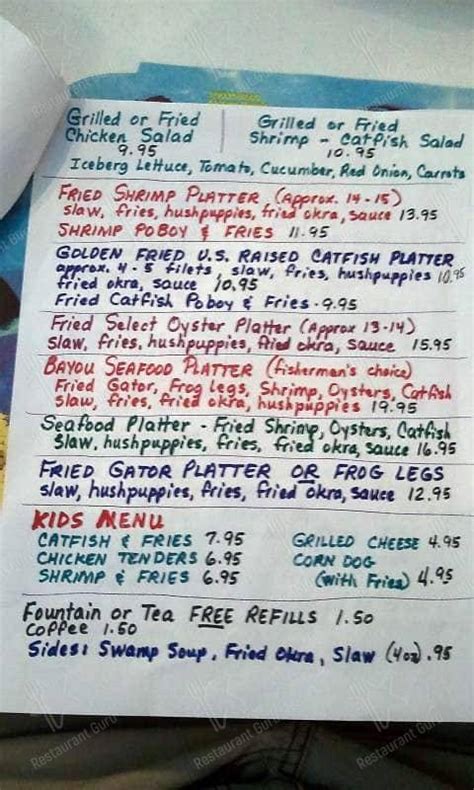 Grilled or Fried
Chicken Salad
9.95
Grilled or Fried
Shrimp - Catfish Salad
10.95
Iceberg Lettuce, Tomato, Cucumber, Red Onion, Carrots
FRIED SHRIMP PLATTER (Approx. 14-15)
slaw, fries, hushpuppies, fried okra, sauce 13.95
SHRIMP POBOY & FRIES 11.95
GOLDEN FRIED U.S. RAISED CATFISH PLATTER
approx. 4-5 filets, slaw, fries, hushpuppies 10.95
fried okra, sauce 10.95
Fried Catfish Poboy & Fries - 9.95
Fried Select Oyster Platter (Approx 13-14)
slaw, fries, hushpuppies, fried okra, sauce 15.95
BAYOU SEAFOOD PLATTER (fisherman's choice)
Fried Gator, Frog legs, Shrimp, Oysters, Catfish
slaw, fries, fried okra, hushpuppies 19.95
Seafood Platter - Fried Shrimp, Oysters, Catfish
slaw, hushpuppies, fries, fried okra, sauce 16.95
FRIED GATOR PLATTER OR FROG LEGS
slaw, hushpuppies, fries, fried okra, sauce 12.95
KIDS MENU
CATFISH & FRIES 7.95
CHICKEN TENDERS 6.95
SHRIMP & FRIES 6.95
GRILLED CHEESE 4.95
CORN DOG
(with Fries) 4.95
Fountain or Tea FREE REFILLS 1.50
Coffee 1.50
Sides: Swamp Soup, Fried Okra, Slaw (4oz) .95
Restaurant Guru
Restaurant Guru